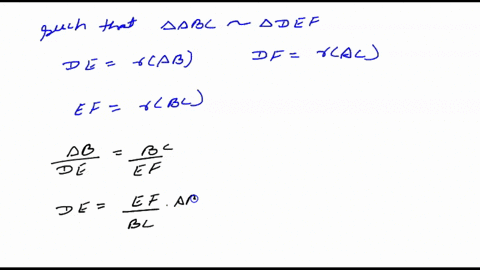 such that △ABC ~ △DEF
DE = r(AB) DF = r(AC)
EF = r(BC)
AB/DE = BC/EF
DE = EF/BC . AB